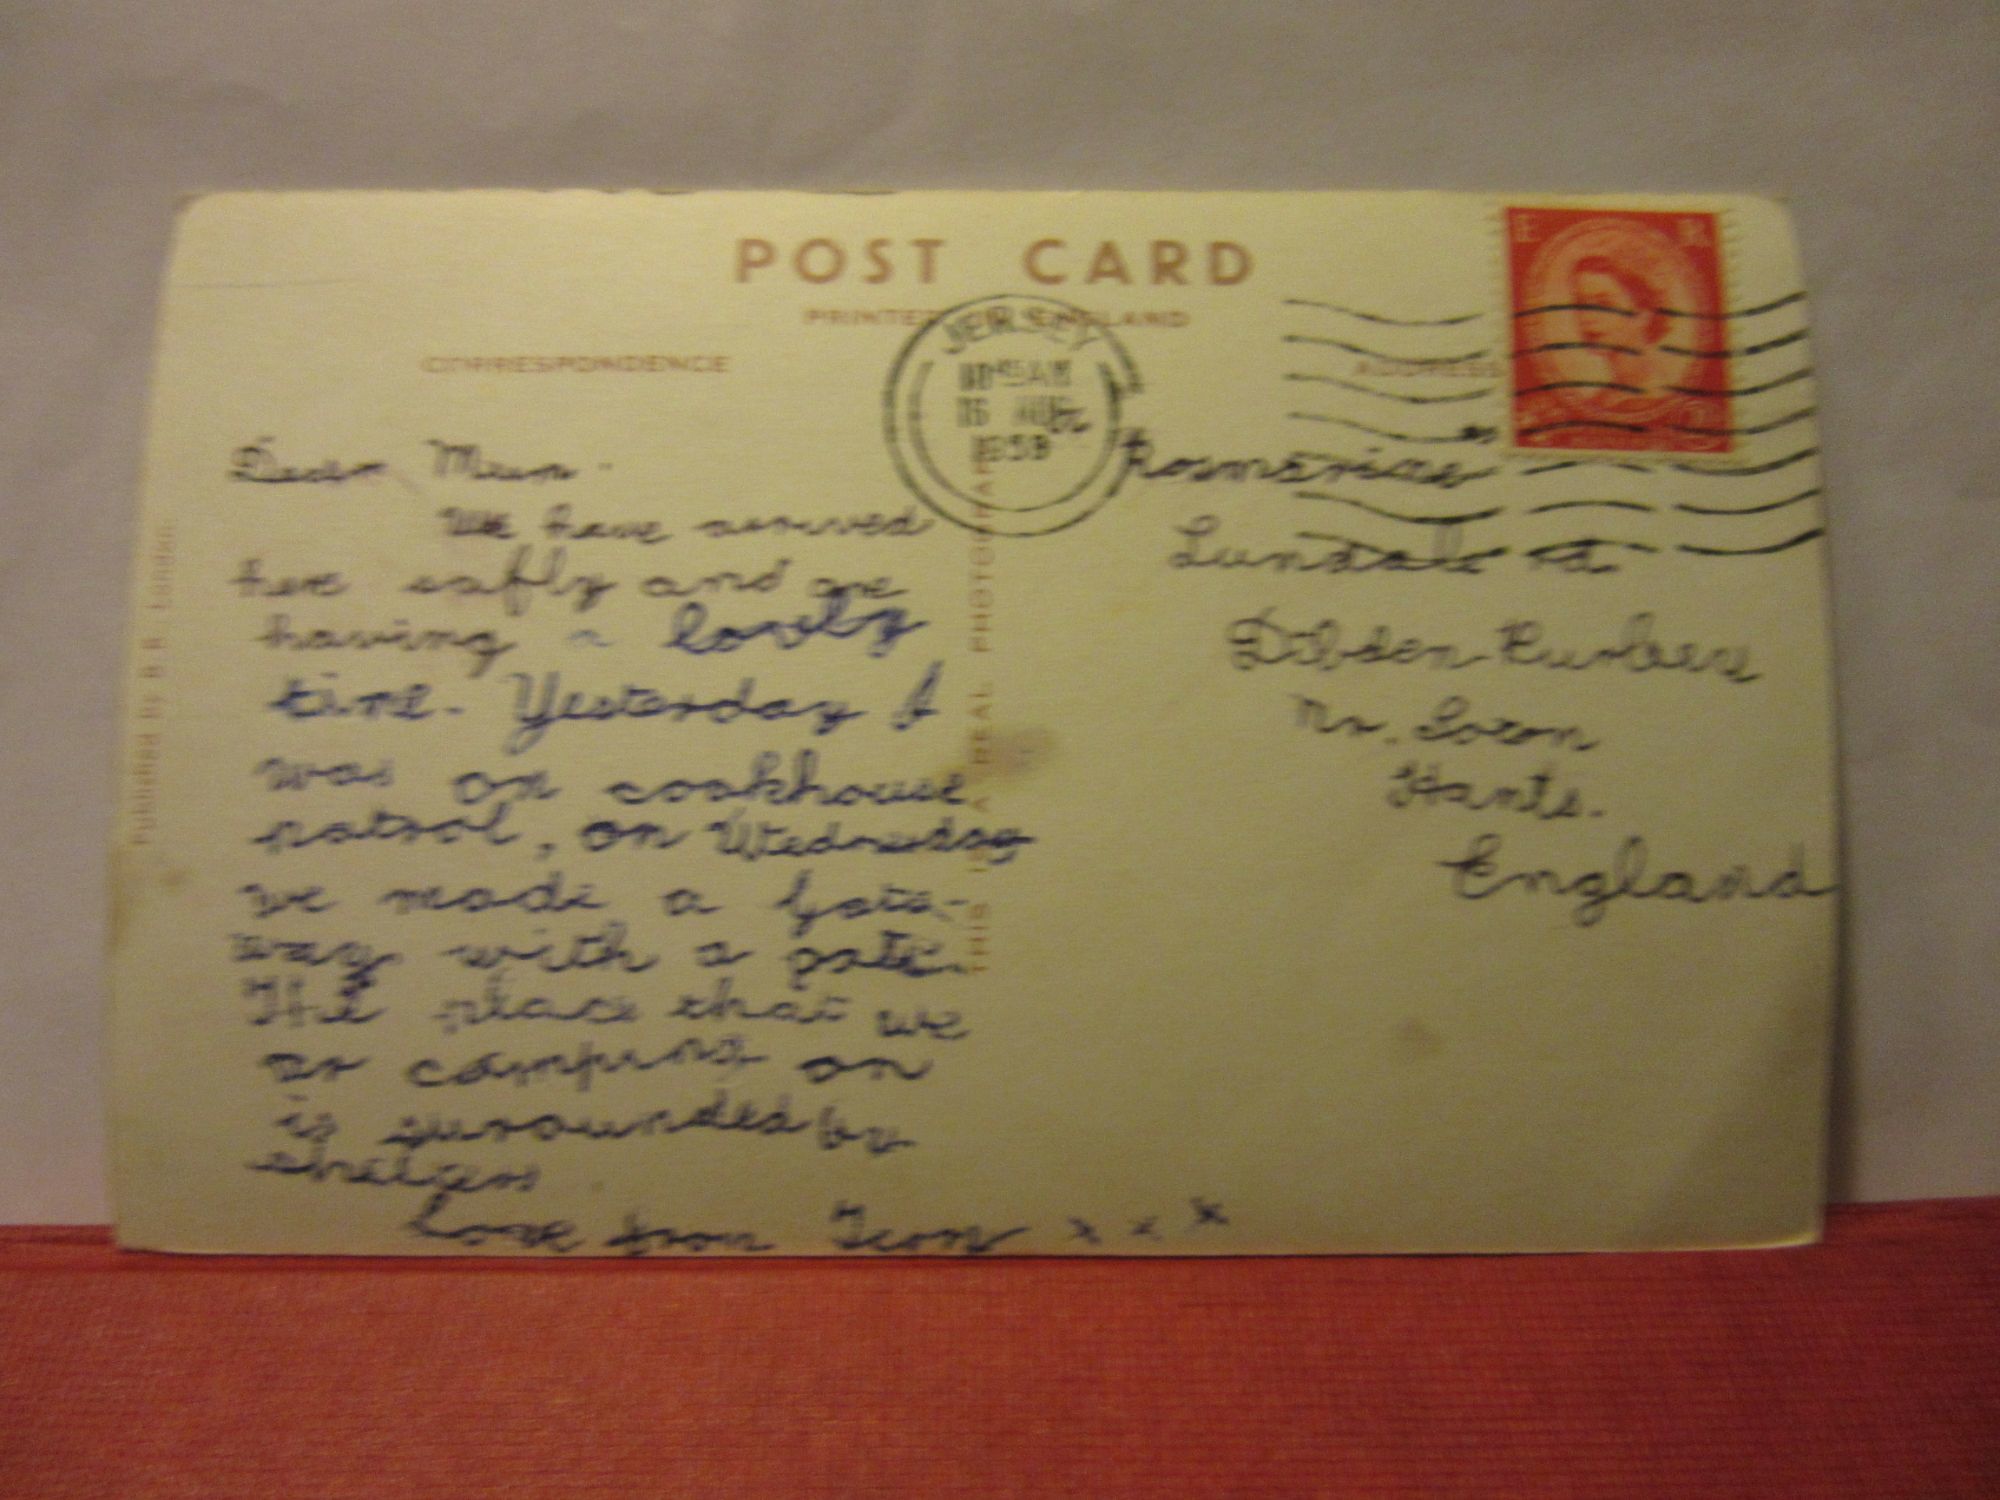 POST CARD
PRINTED ENGLAND
CORRESPONDENCE
ADDRESS
JERSEY
AM
1958
E R
Dear Mum
We have arrived
here safly and are
having a lovely
time. Yesterday I
was on cookhouse
patrol, on Wednesday
we made a gate-
way with a gate.
The place that we
ar camping on
is surounded by
Love from x x x
Lunedale rd.
Dibden Purlieu
Nr.
Hants.
England
THIS IS A REAL PHOTOGRAPH
Published by London